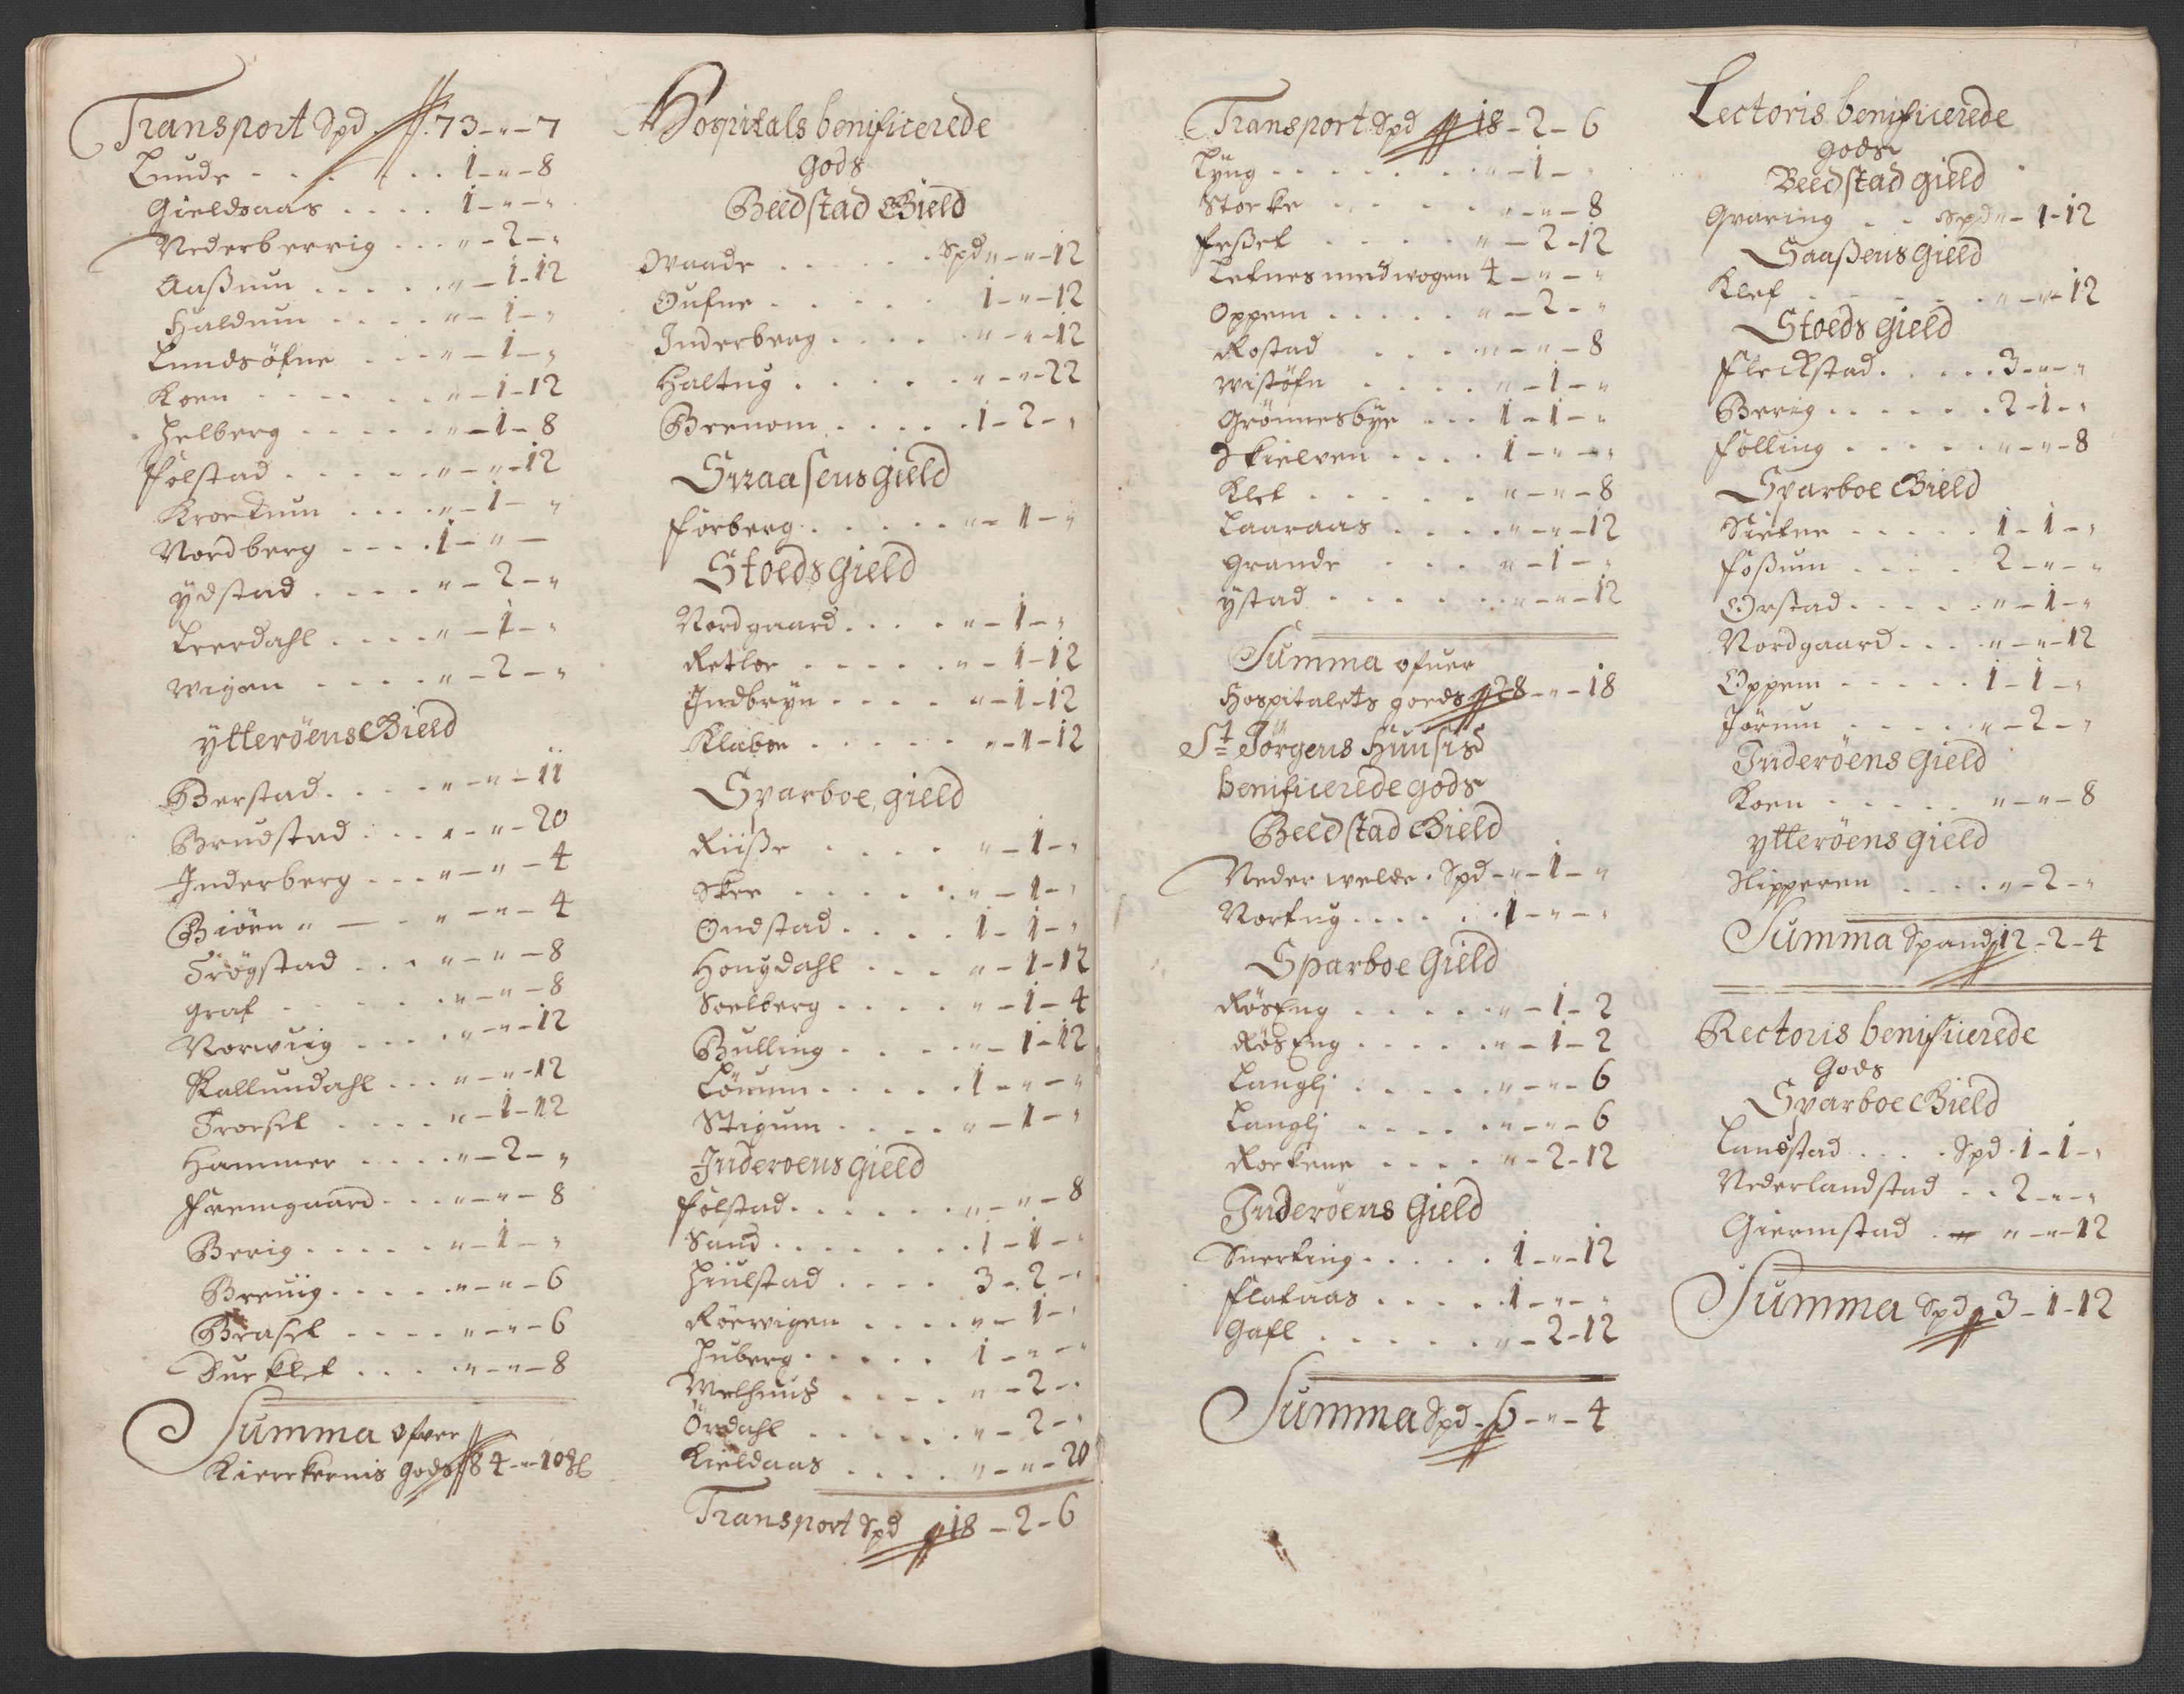 Transport Spd 73 - „ - 7
Lunde . . . . 1 - „ - 8
Gieldsaas . . . . 1 - „ - „
Nederberrig . . . „ - 2 - „
Aaßum . . . . . „ - 1 - 12
Haldum . . . . „ - 1 - „
Lundsöfne . . . „ - 1 - „
Koen . . . . . „ - 1 - 12
Helberg . . . . . „ - 1 - 8
Folstad . . . . . „ - „ - 12
Kroeknum . . . . „ - 1 - „
Nordberg . . . . 1 - „ -
Ydstad . . . . „ - 2 - „
Leerdahl . . . . „ - 1 - „
Wigen . . . . „ - 2 - „
Ytteröens Gield
Berstad . . . . „ - „ - 11
Brudstad . . . „ - „ - 20
Inderberg . . . „ - „ - 4
Biörn „ — . „ - „ - 4
Trögstad . . . „ - „ - 8
Graf . . . . . „ - „ - 8
Norwiig . . . . „ - „ - 12
Kallundahl . . . „ - „ - 12
Troesel . . . . „ - 1 - 12
Hammer . . . . „ - 2 - „
Fremgaard . . . „ - „ - 8
Berig . . . . . „ - 1 - „
Breuig . . . . . „ - „ - 6
Brasel . . . . „ - „ - 6
Dueklet . . . . „ - „ - 8
Summa ofver
Kierckernis gods 84 - „ - 10
Hospitals benificerede
gods
Beedstad Gield
Waade . . . . . Spd „ - „ - 12
Oufne . . . . . 1 - „ - 12
Inderberg . . . . „ - „ - 12
Haltug . . . . . „ - „ - 22
Breenom . . . . 1 - 2 - „
Snaasens gield
Forberg . . . . . „ - 1 - „
Stoeds Gield
Nordgaard . . . . „ - 1 - „
Retloe . . . . . „ - 1 - 12
Indbryn . . . . „ - 1 - 12
Klaboe . . . . . „ - 1 - 12
Sparboe gield
Riiße . . . . „ - 1 - „
Skee . . . . . „ - 1 - „
Ondstad . . . . 1 - 1 - „
Hougdahl . . . „ - 1 - 12
Soelberg . . . . „ - 1 - 4
Bulling . . . . „ - 1 - 12
Lörum . . . . . 1 - „ - „
Stigum . . . . „ - 1 - „
Inderoens gield
Folstad . . . . . . „ - „ - 8
Sand . . . . . . . 1 - 1 - „
Hiulstad . . . . 3 - 2 - „
Röerwigen . . . . „ - 1 - „
Huberg . . . . . 1 - „ - „
Welhuus . . . . „ - 2 - „
Örrdahl . . . . . „ - 2 - „
Kieldaas . . . . „ - „ - 20
Transport Spd 18 - 2 - 6
Transport Spd 18 - 2 - 6
Lyng . . . . . . „ - 1 - „
Storke . . . . „ - „ - 8
Feßet . . . . „ - 2 - 12
Leknes med wogen 4 - „ - „
Oppem . . . . . „ - 2 - „
Rostad . . . „ - „ - 8
Wistöfn . . . . „ - 1 - „
Grönnesbye . . . 1 - 1 - „
Skielven . . . . 1 - „ - „
Klef . . . . . „ - „ - 8
Laaraas . . . . „ - „ - 12
Grande . . . „ - 1 - „
Ystad . . . . . . „ - „ - 12
Summa ofuer
Hospitalets goeds 28 - „ - 18
St Jörgens Huusis
benificerede gods
Beedstad Gield
Neder welde . Spd - „ - 1 - „
Norkug . . . . . 1 - „ - „
Sparboe Gield
RösEng . . . . . „ - 1 - 2
RösEng . . . . . „ - 1 - 2
Langlj . . . . . „ - „ - 6
Langlj . . . . . „ - „ - 6
Roekene . . . . „ - 2 - 12
Inderöens Gield
Sneeking . . . . . 1 - „ - 12
Flataas . . . . . 1 - „ - „
Gafl . . . . . „ - 2 - 12
Summa Spd . 6 - „ - 4
Lectoris benificerede
gods
Beedstad gield
Qvaring . . Spd „ - 1 - 12
Snaaßens gield
Klef . . . . . . „ - „ - 12
Stoeds gield
Fleckstad . . . . . 3 - „ - „
Berig . . . . . . 2 - 1 - „
Folling . . . . . „ - „ - 8
Sparboe Gield
Siekne . . . . . 1 - 1 - „
Foßum . . . . 2 - „ - „
Orstad . . . . . „ - 1 - „
Nordgaard . . . . „ - „ - 12
Oppem . . . . . 1 - 1 - „
Jörum . . . . . „ - 2 - „
Inderöens gield
Koen . . . . . „ - „ - 8
Ytteröens gield
Slipperen . . . . „ - 2 - „
Summa Spand 12 - 2 - 4
Rectoris benificerede
Gods
Sparboe Gield
Landstad . . . . Spd . 1 - 1 - „
Nederlandstad . . 2 - „ - „
Giermstad . „ - „ - 12
Summa Spd 3 - 1 - 12